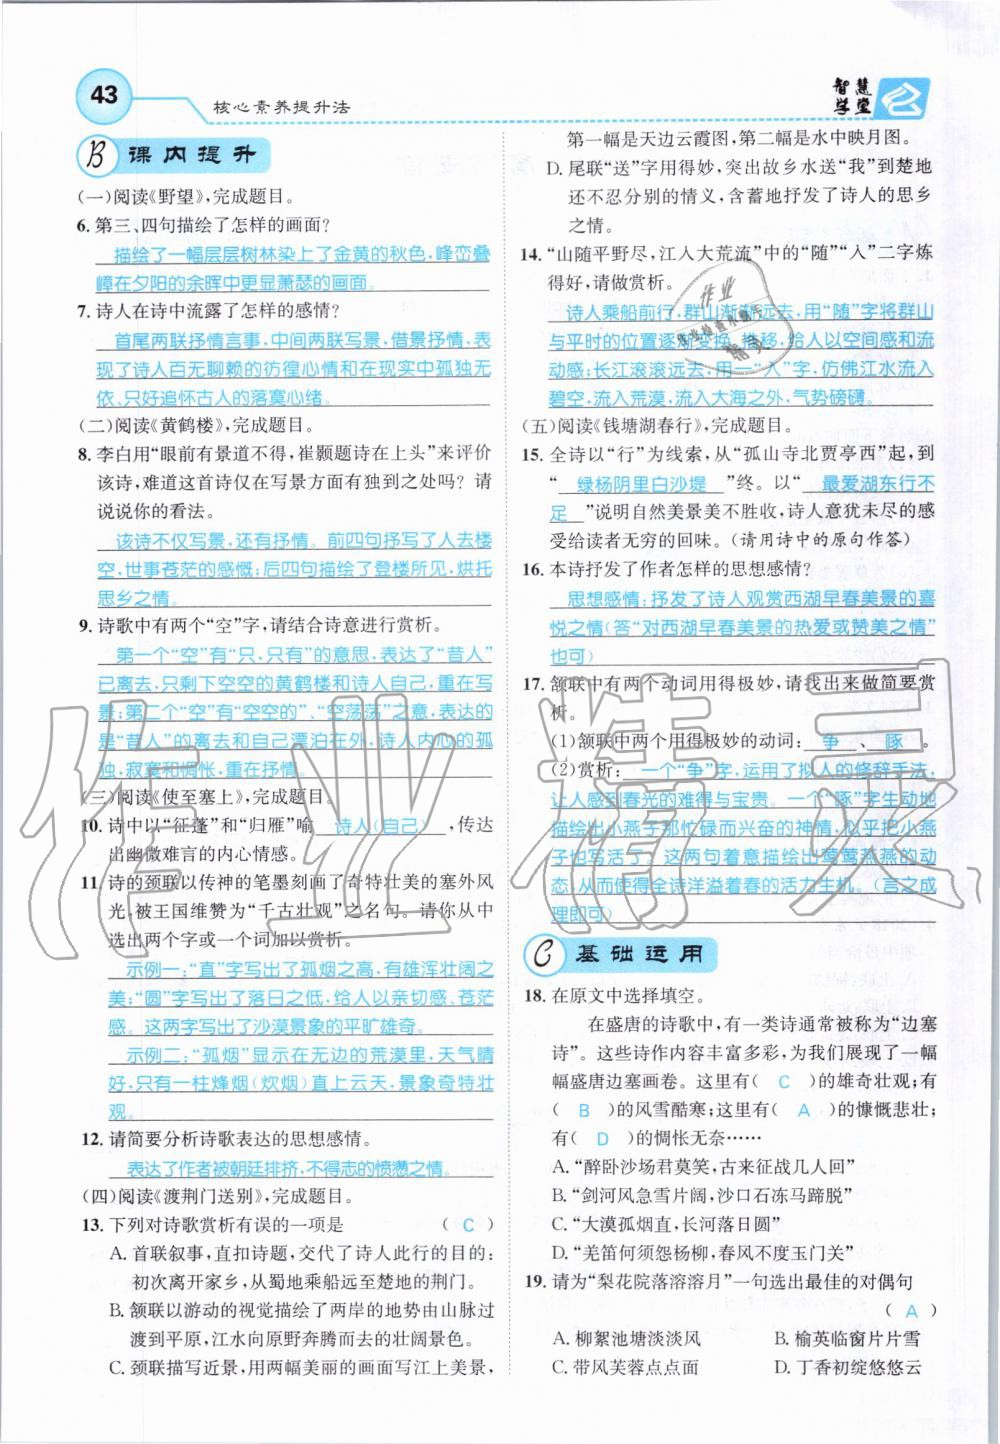 43
核心素养提升法
智慧
学堂
B 课内提升
(一)阅读《野望》,完成题目。
6. 第三、四句描绘了怎样的画面?
描绘了一幅层层树林染上了金黄的秋色,峰峦叠
嶂在夕阳的余晖中更显萧瑟的画面。
7. 诗人在诗中流露了怎样的感情?
首尾两联抒情言事,中间两联写景,借景抒情,表
达了诗人百无聊赖的彷徨心情和在现实中孤独无
依、只好追怀古人的落寞心绪。
(二)阅读《黄鹤楼》,完成题目。
8. 李白用“眼前有景道不得,崔颢题诗在上头”来评价
该诗,难道这首诗仅在写景方面有独到之处吗?请
说说你的看法。
该诗不仅写景,还有抒情。前四句抒写了人去楼
空,世事苍茫的感慨;后四句描绘了登楼所见,烘托
思乡之情。
9. 诗歌中有两个“空”字,请结合诗意进行赏析。
第一个“空”有“只,只有”的意思,表达了“昔人”
已离去,只剩下空空的黄鹤楼和诗人自己,重在写
景;第二个“空”有“空空的”、“空荡荡”之意,表达的
是“昔人”的离去和自己漂泊在外,诗人内心的孤
独,寂寞和惆怅,重在抒情。
(三)阅读《使至塞上》,完成题目。
10. 诗中以“征蓬”和“归雁”喻 诗人(自己) ,传达
出幽微难言的内心情感。
11. 诗的颈联以传神的笔墨刻画了奇特壮美的塞外风
光,被王国维赞为“千古壮观”之名句。请你从中
选出两个字或一个词加以赏析。
示例一:“直”字写出了孤烟之高,有雄浑壮阔之
美:“圆”字写出了落日之低,给人以亲切感、苍茫
感。这两字写出了沙漠景象的平旷雄奇。
示例二:“孤烟”显示在无边的荒漠里,天气晴
好,只有一柱烽烟(炊烟)直上云天,景象奇特壮
观。
12. 请简要分析诗歌表达的思想感情。
表达了作者被朝廷排挤,不得志的愤懑之情。
(四)阅读《渡荆门送别》,完成题目。
13. 下列对诗歌赏析有误的一项是 ( C )
A. 首联叙事,直扣诗题,交代了诗人此行的目的:
初次离开家乡,从蜀地乘船远至楚地的荆门。
B. 颔联以游动的视觉描绘了两岸的地势由山脉过
渡到平原,江水向原野奔腾而去的壮阔景色。
C. 颈联描写近景,用两幅美丽的画面写江上美景,
第一幅是天边云霞图,第二幅是水中映月图。
D. 尾联“送”字用得妙,突出故乡水送“我”到楚地
还不忍分别的情义,含蓄地抒发了诗人的思乡
之情。
14. “山随平野尽,江入大荒流”中的“随”“入”二字炼
得好,请做赏析。
诗人乘船前行,群山渐渐远去,用“随”字将群山
与平时的位置逐渐变换、推移,给人以空间感和流
动感;长江滚滚远去,用一“入”字,仿佛江水流入
碧空,流入荒漠,流入大海之外,气势磅礴。
(五)阅读《钱塘湖春行》,完成题目。
15. 全诗以“行”为线索,从“孤山寺北贾亭西”起,到
“ 绿杨阴里白沙堤 ”终。以“ 最爱湖东行不
足 ”说明自然美景美不胜收,诗人意犹未尽的感
受给读者无穷的回味。(请用诗中的原句作答)
16. 本诗抒发了作者怎样的思想感情?
思想感情:抒发了诗人观赏西湖早春美景的喜
悦之情(答“对西湖早春美景的热爱或赞美之情”
也可)
17. 颔联中有两个动词用得极妙,请找出来做简要赏
析。
(1)颔联中两个用得极妙的动词: 争 、 啄 。
(2)赏析: 一个“争”字,运用了拟人的修辞手法,
让人感到春光的难得与宝贵。一个“啄”字生动地
描绘出小燕子那忙碌而兴奋的神情,似乎把小燕
子也写活了。这两句着意描绘出莺莺燕燕的动
态,从而使得全诗洋溢着春的活力生机。(言之成
理即可)
C 基础运用
18. 在原文中选择填空。
在盛唐的诗歌中,有一类诗通常被称为“边塞
诗”。这些诗作内容丰富多彩,为我们展现了一幅
幅盛唐边塞画卷。这里有( C )的雄奇壮观;有
( B )的风雪酷寒;这里有( A )的慷慨悲壮;
有( D )的惆怅无奈……
A. “醉卧沙场君莫笑,古来征战几人回”
B. “剑河风急雪片阔,沙口石冻马蹄脱”
C. “大漠孤烟直,长河落日圆”
D. “羌笛何须怨杨柳,春风不度玉门关”
19. 请为“梨花院落溶溶月”一句选出最佳的对偶句
( A )
A. 柳絮池塘淡淡风 B. 榆英临窗片片雪
C. 带风芙蓉点点面 D. 丁香初绽悠悠云
作业精灵